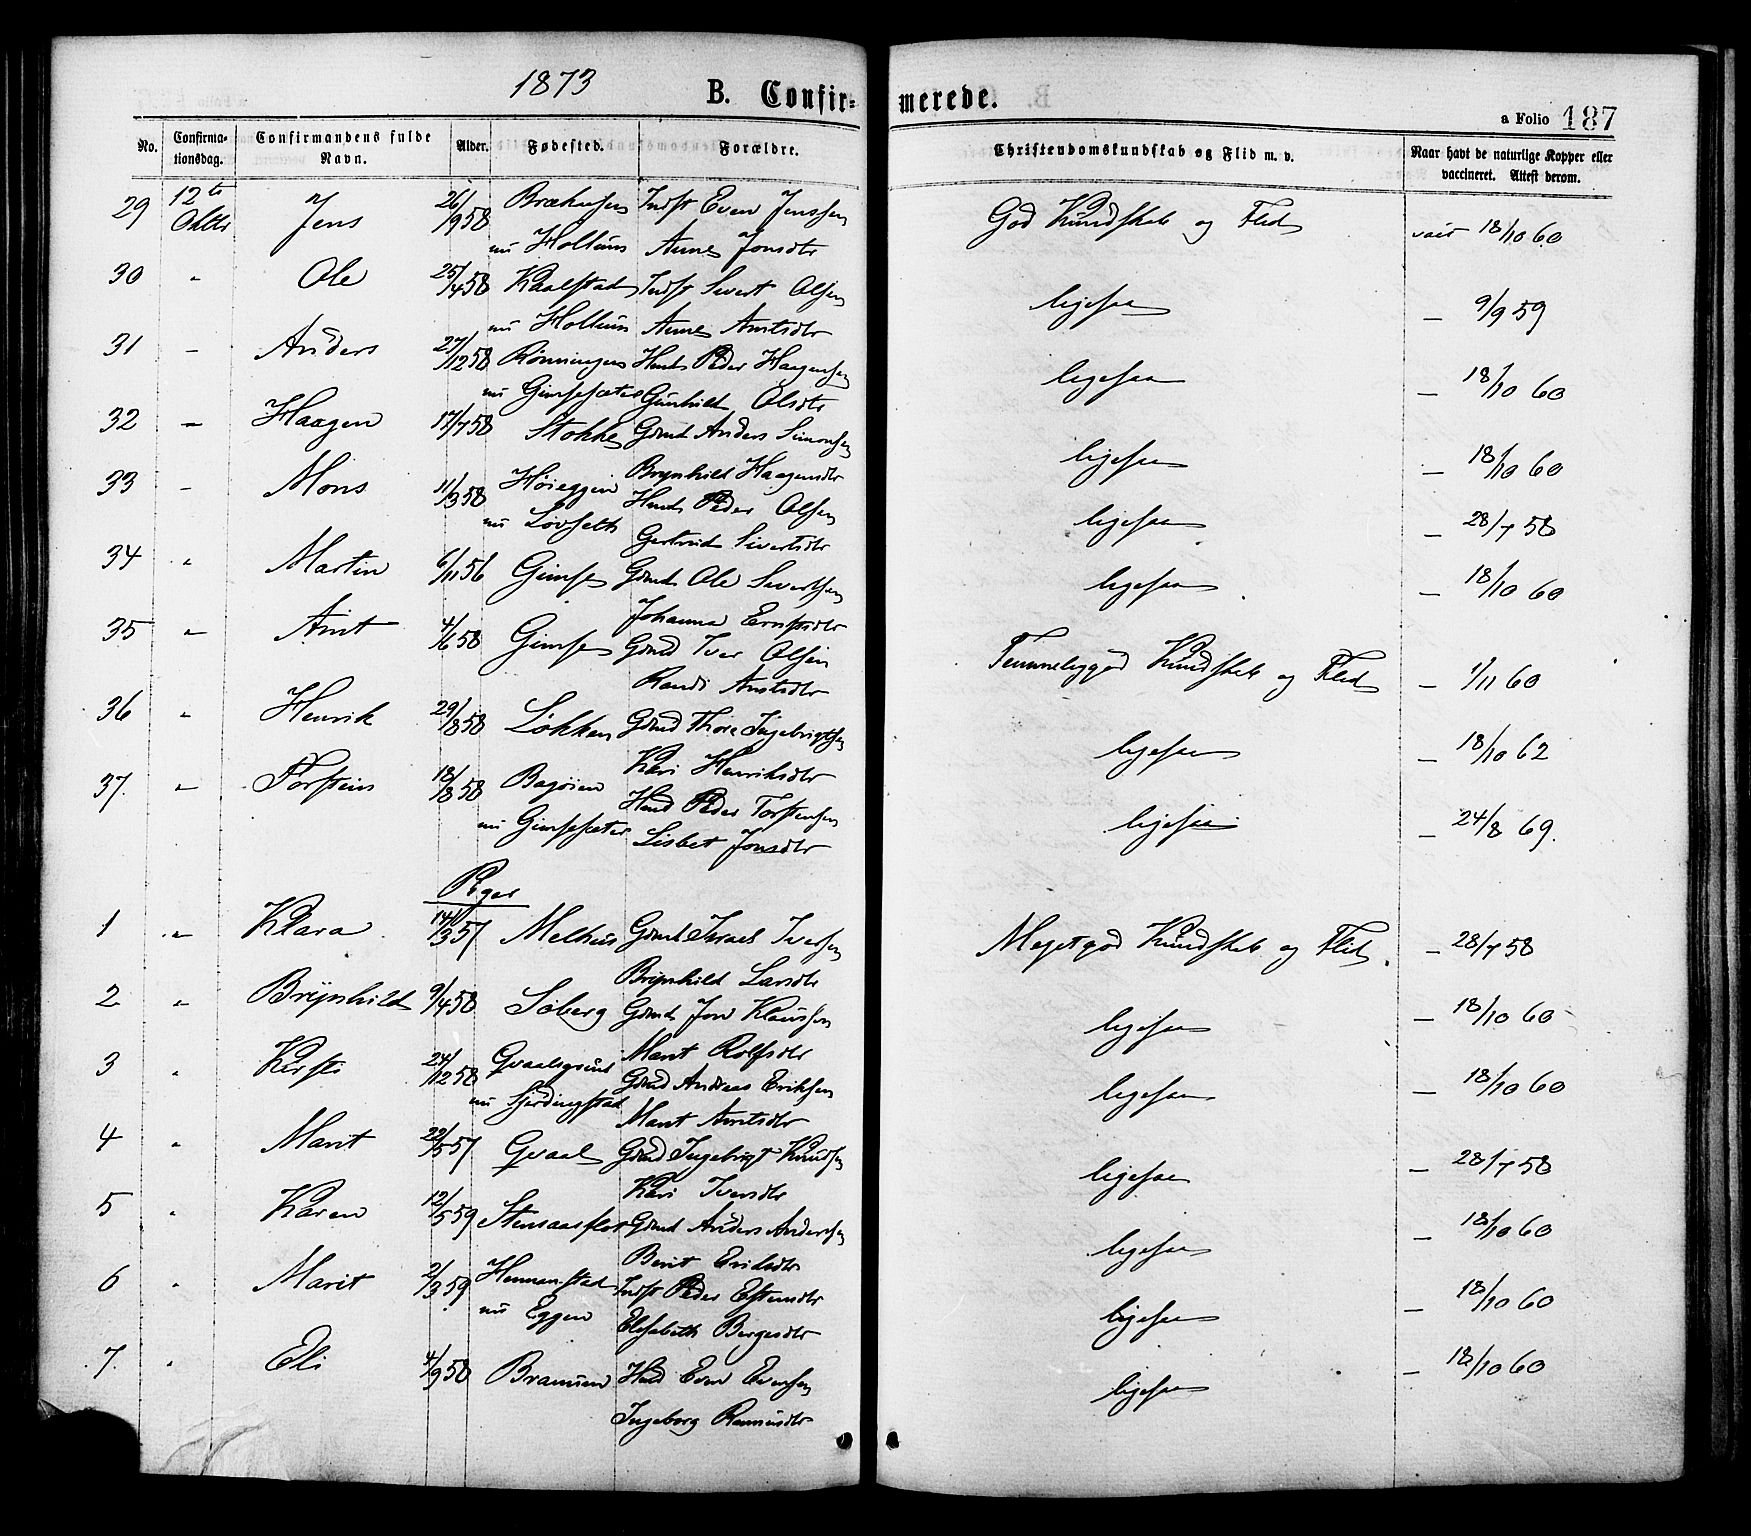 1873
B. Confir-
merede.
a Folio 187
No.
Confirma-
tionsdag.
Confirmandens fulde
Navn.
Alder.
Fødested.
Forældre.
Christendomskundskab og Flid m. v.
Naar havt de naturlige Kopper eller
vaccineret. Attest derom.
29 12te Jens 26/9 58 Brækhusen Indst Even Jenssen God Kundskab og Flid vacc 18/10 60
Oktbr nu Hollum Anne Jonsdtr
30 " Ole 25/4 58 Kaalstad Indst Sivert Olsen ligesaa — 9/9 59
nu Hollum Anne Arntsdtr
31 – Anders 27/12 58 Rønningen Hmd Peder Haagensen ligesaa — 18/10 60
nu Gimsesæter Gunhild Olsdtr
32 – Haagen 17/7 58 Stokke Grmd Anders Simonsen ligesaa — 18/10 60
Brynhild Haagensdtr
33 – Mons 11/3 58 Høieggen Hmd Peder Olsen ligesaa — 28/7 58
nu Løvseth Gertrud Sivertsdtr
34 " Martin 6/11 56 Gimse Grmd Ole Sivertsen ligesaa — 18/10 60
Johanna Ernstsdtr
35 " Arnt 4/6 58 Gimse Grmd Iver Olsen Temmeliggod Kundskab og Flid — 1/11 60
Randi Arntsdtr
36 " Henrik 29/8 58 Løkken Grmd Thore Ingebrigtsen ligesaa — 18/10 62
Kari Henriksdtr
37. " Torstein 18/8 58 Bagøien Hmd Peder Torstensen ligesaa — 24/8 69.
nu Gimsesæter Lisbet Jonsdtr
Piger
1 " Klara 14/3 57 Melhus Grmd Israel Iversen Megetgod Kundskab og Flid. — 28/7 58
Brynhild Larsdtr
2 " Brynhild 9/4 58 Søberg Grmd Jon Klaussen ligesaa — 18/10 60
Marit Rolfsdtr
3 " Kirsti 24/12 58 Qvaalsgrind Grmd Andreas Eriksen ligesaa — 18/10 60
nu Gjerdingstad Marit Arntsdtr
4 " Marit 22/5 57 Qvaal Grmd Ingebrigt Knudsen ligesaa — 28/7 58
Kari Iversdtr
5 " Karen 12/5 59 Stensaasflor Grmd Anders Andersen ligesaa — 18/10 60
Berit Eriksdtr
6 " Marit 2/3 59 Hermanstad Indst Peder Estensdtr ligesaa — 18/10 60
nu Eggen Elisabeth Bergesdtr
7. " Eli 4/9 58 Bramuen Hmd Even Evensen ligesaa — 18/10 60
Ingeborg Rasmusdtr